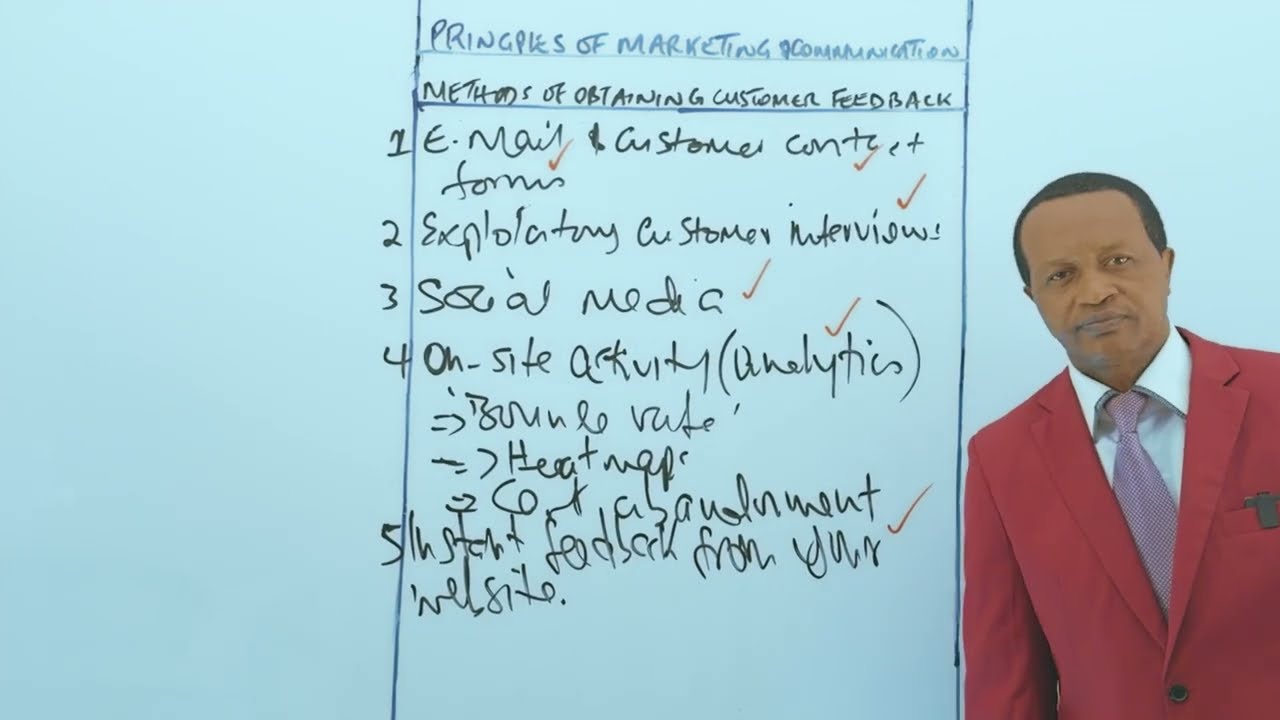 PRINCIPLES OF MARKETING & COMMUNICATION
METHODS OF OBTAINING CUSTOMER FEEDBACK
1 E-Mail & Customer contact
forms
2 Exploratory Customer interviews
3 Social media
4 On-site activity (analytics)
=> Bounce rate
=> Heatmaps
=> Cart abandonment
5 Instant feedback from your
website.